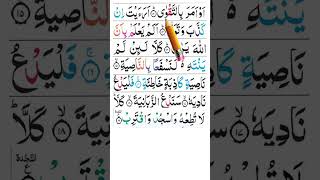 اَوْ اَمَرَ بِالتَّقْوٰى ۝ اَرَءَيْتَ اِنْ
كَذَّبَ وَتَوَلّٰى ۝ اَلَمْ يَعْلَمْ بِاَنَّ
اللّٰهَ يَرٰى ۝ كَلَّا لَئِنْ لَّمْ
يَنْتَهِ ۙ لَنَسْفَعًۢا بِالنَّاصِيَةِ ۝
نَاصِيَةٍ كَاذِبَةٍ خَاطِئَةٍ ۝ فَلْيَدْعُ
نَادِيَهٗ ۝ سَنَدْعُ الزَّبَانِيَةَ ۝ كَلَّا
لَا تُطِعْهُ وَاسْجُدْ وَاقْتَرِبْ ۝